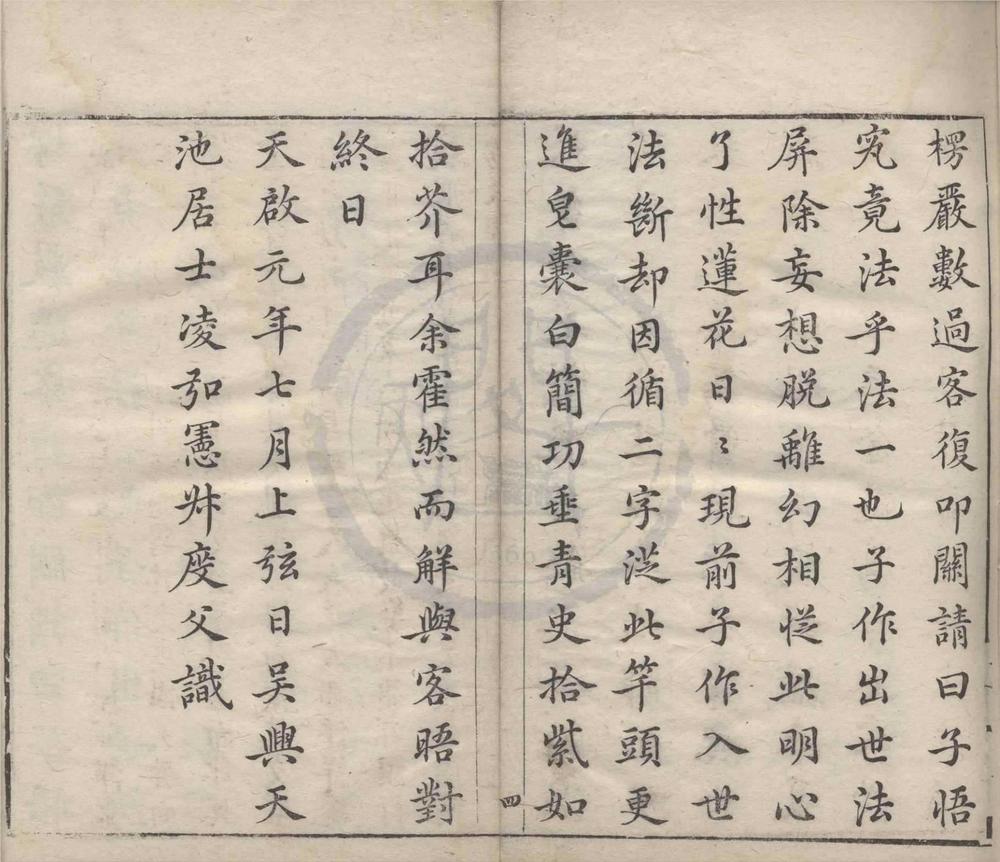 楞嚴數過客復叩關請曰子悟
究竟法乎法一也子作出世法
屏除妄想脱離幻相従此明心
了性蓮花日〻現前子作入世
法斷却因循二字従此竿頭更
進皂囊白簡功垂青史拾紫如
四
拾芥耳余霍然而解與客晤對
終日
天啟元年七月上弦日吴興天
池居士凌弘憲叔度父識